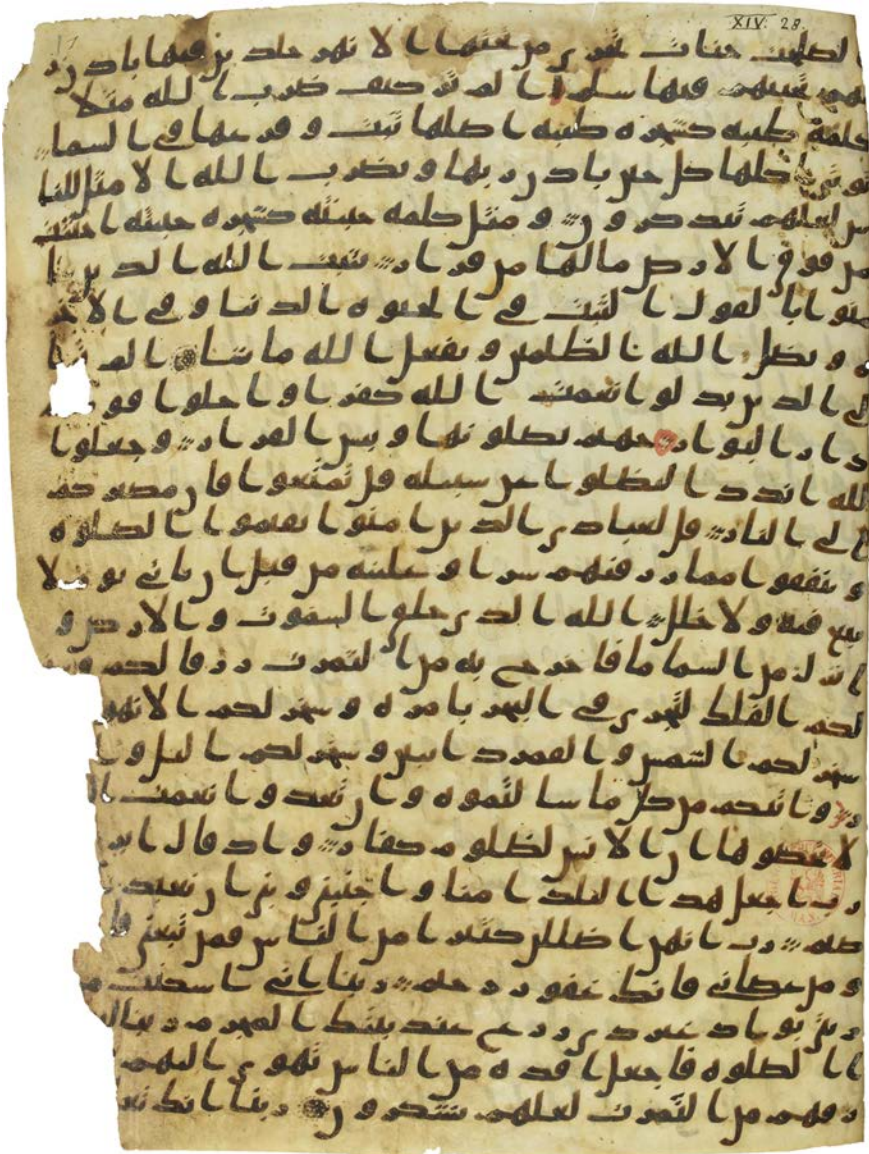 XIV. 28.
الصلحت جنات تجري من تحتها الانهر خلدين فيها باذن ر
بهم تحيتهم فيها سلم الم تر كيف ضرب الله مثلا
كلمة طيبه كشجره طيبه اصلها ثبت وفرعها في السما
توتي اكلها كل حين باذن ربها ويضرب الله الامثل للنا
س لعلهم يتذكرون ومثل كلمه خبيثه كشجره خبيثه اجتثت
من فوق الارض ما لها من قرار يثبت الله الذين ا
منوا بالقول الثبت في الحيوه الدنيا وفي الاخر
ه ويضل الله الظلمين ويفعل الله ما يشا الم تر ا
لى الذين بدلوا نعمت الله كفرا واحلوا قومهم
دار البوار جهنم يصلونها وبيس القرار وجعلوا
لله اندادا ليضلوا عن سبيله قل تمتعوا فان مصيركم
الى النار قل لعبادي الذين امنوا يقيموا الصلوه
وينفقوا مما رزقنهم سرا وعلنيه من قبل ان ياتي يوم لا
بيع فيه ولا خلل الله الذي خلق السموت والارض و
انزل من السما ما فاخرج به من الثمرت رزقا لكم و
لكم الفلك لتجري في البحر بامره وسخر لكم الانهر
سخر لكم الشمس والقمر دابين وسخر لكم اليل و
ر واتيكم من كل ما سالتموه وان تعدوا نعمت ا
لا تحصوها ان الانسن لظلوم كفار واذ قال ابر
رب اجعل هذا البلد امنا واجنبني وبني ان نعبد
صنم رب انهن اضللن كثيرا من الناس فمن تبعني فا
ومن عصاني فانك غفور رحيم ربنا اني اسكنت م
ذريتي بواد غير ذي زرع عند بيتك المحرم ربنا لي
ا الصلوه فاجعل افده من الناس تهوي اليهم
رزقهم من الثمرت لعلهم يشكرون ربنا انك تع